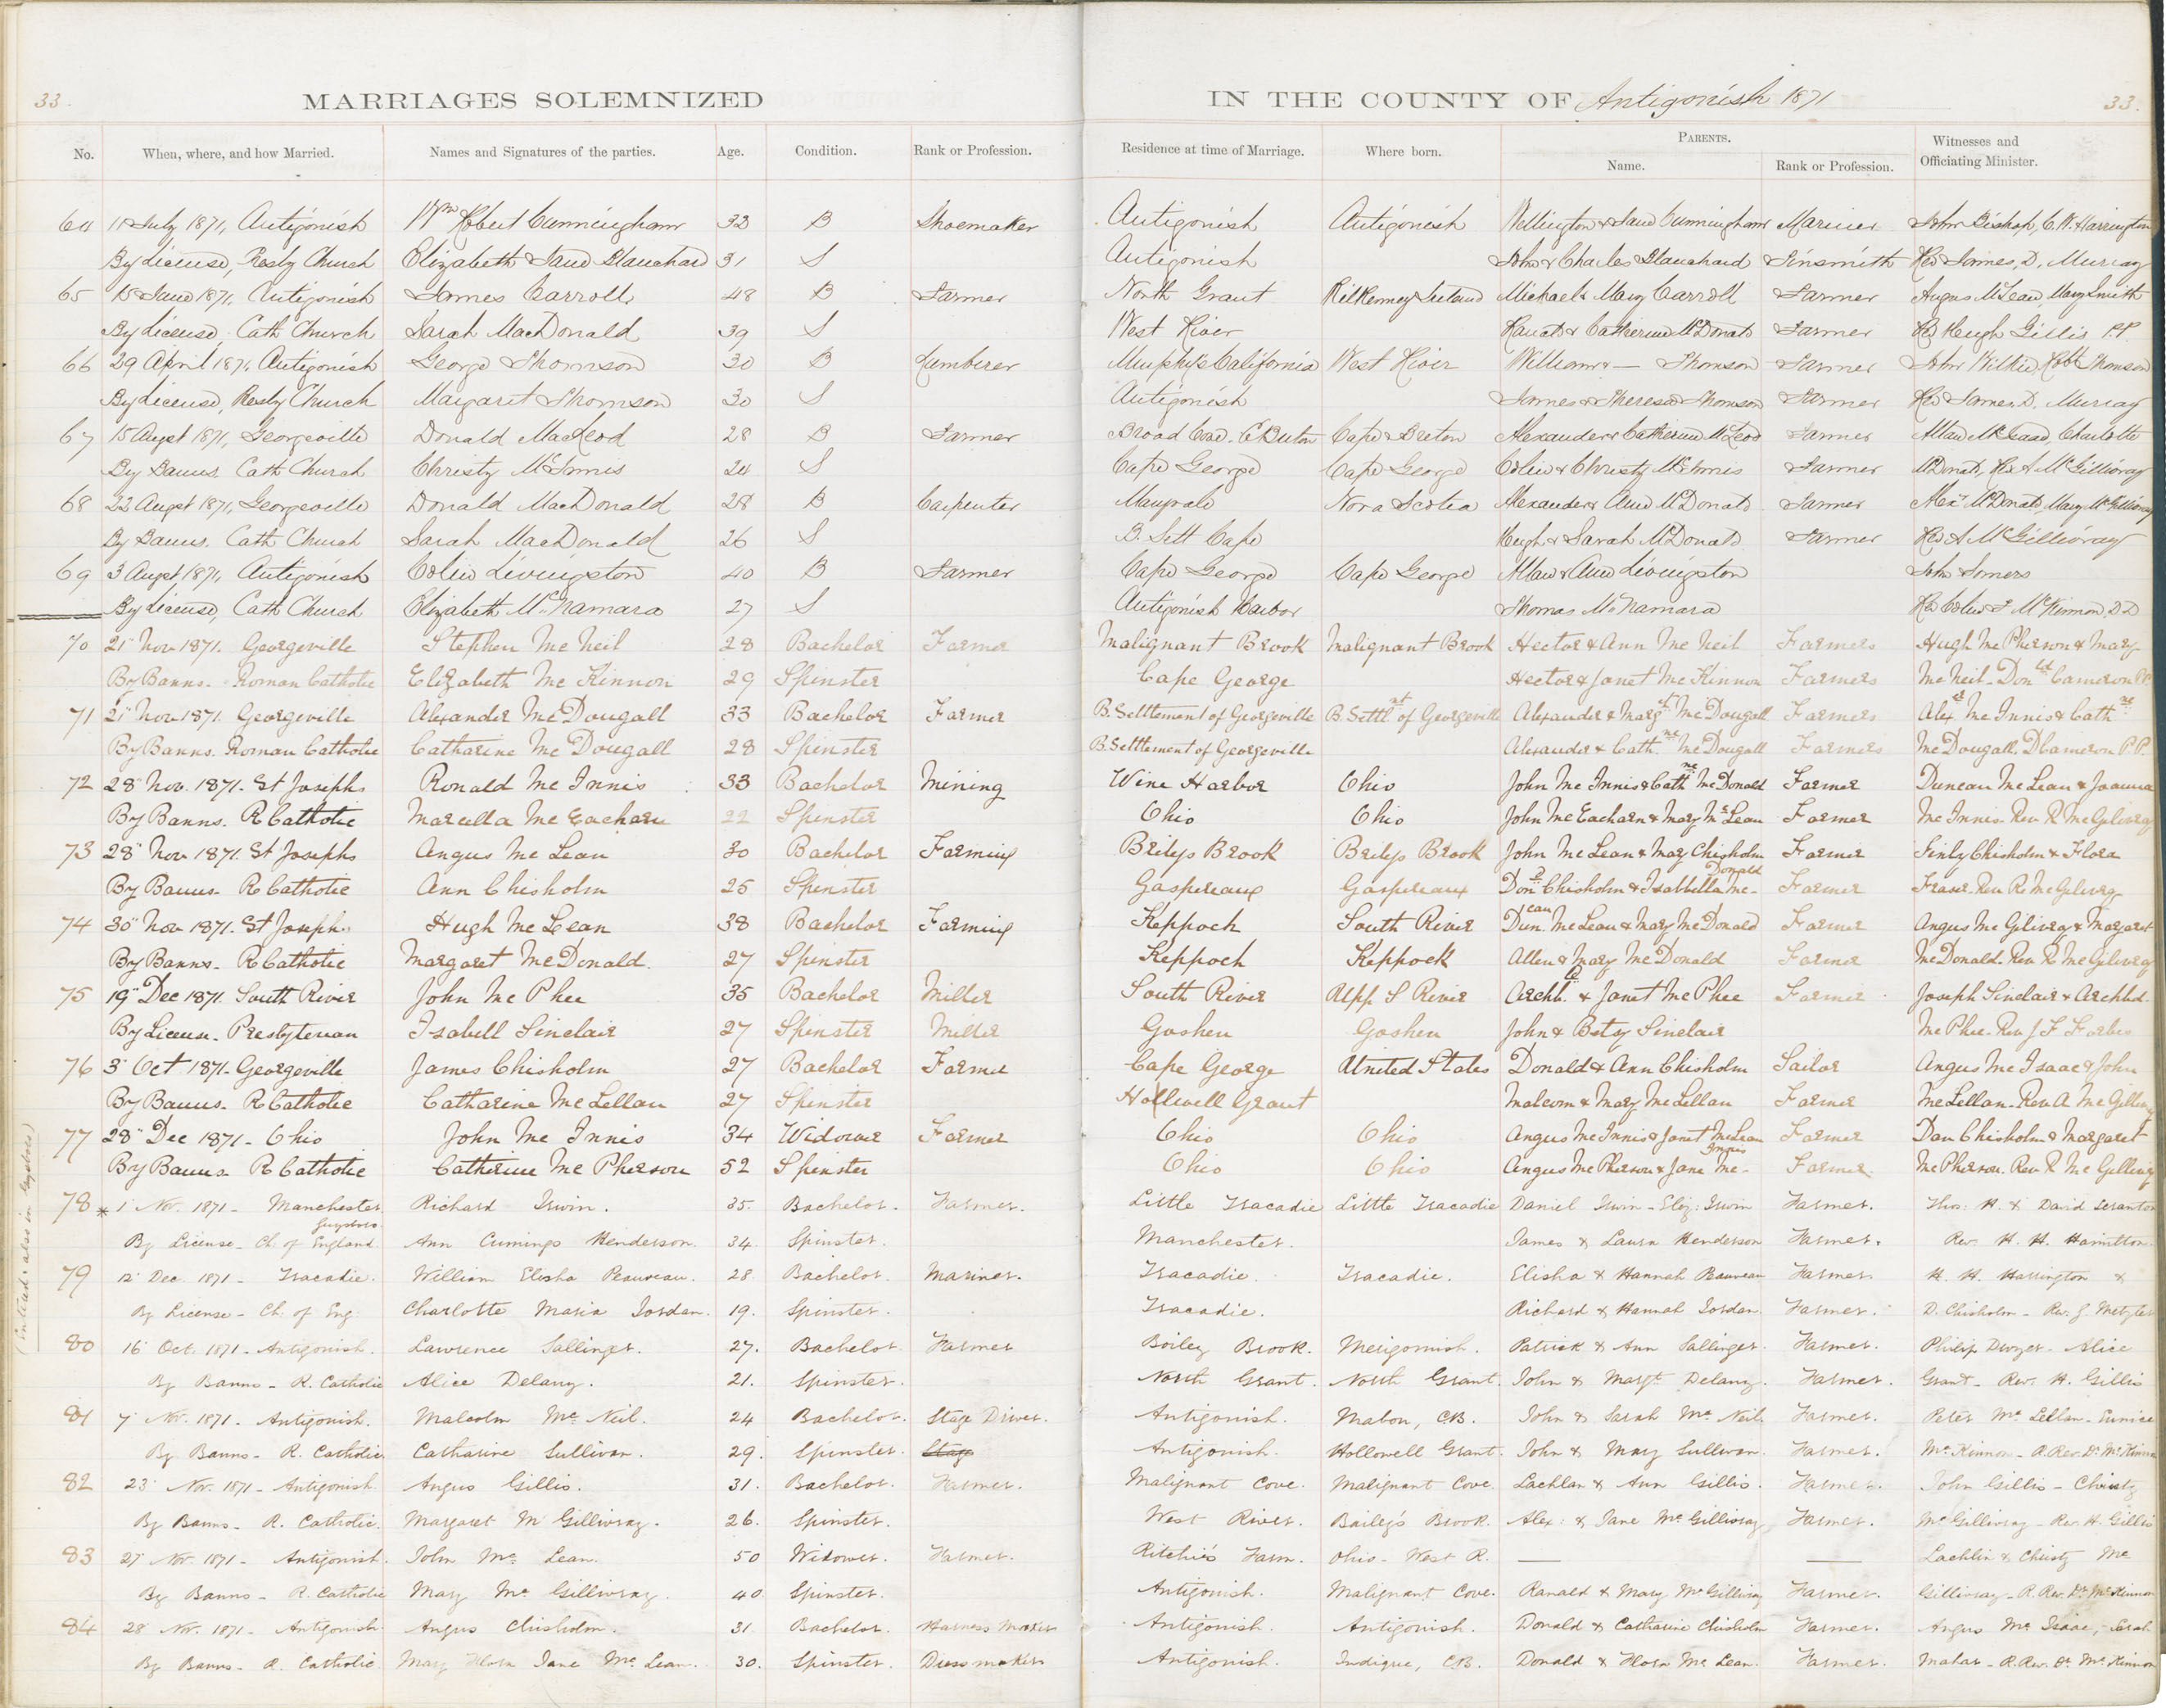 33. MARRIAGES SOLEMNIZED IN THE COUNTY OF Antigonish 1871 33.
No. When, where, and how Married. Names and Signatures of the parties. Age. Condition. Rank or Profession. Residence at time of Marriage. Where born. PARENTS. Name. Rank or Profession. Witnesses and Officiating Minister.
64 11 July 1871, Antigonish Wm Robert Cunningham 32 B Shoemaker Antigonish Antigonish Wellington & Jane Cunningham Mariner John Bishop, C.W. Harrington
By License, Presby Church Elizabeth Jane Blanchard 31 S Antigonish John & Charles Blanchard Tinsmith Rev James D. Murray
65 15 June 1871, Antigonish James Carroll 48 B Farmer North Grant Kilkenney Ireland Michael & Mary Carroll Farmer Angus McLean, Mary Smith
By License, Cath Church Sarah MacDonald 39 S West River & Catherine McDonald Farmer Rev Hugh Gillis P.P.
66 29 April 1871, Antigonish George Thomson 30 B Lumberer Murphy's California West River William & — Thomson Farmer John Wilkie, Robt Thomson
By License, Presby Church Margaret Thomson 30 S Antigonish James & Theresa Thomson Farmer Rev James D. Murray
67 15 Augst 1871, Georgeville Donald MacLeod 28 B Farmer Broad Cove. C Breton Cape Breton Alexander & Catherine McLeod Farmer Allan McIsaac, Charlotte
By Banns. Cath Church Christy McInnis 24 S Cape George Cape George Colin & Christy McInnis Farmer McDonald, Rev A McGillivray
68 22 Augst 1871, Georgeville Donald MacDonald 28 B Carpenter Nova Scotia Alexander & Ann McDonald Farmer Alexr McDonald, Mary McGillivray
By Banns. Cath Church Sarah MacDonald 26 S B. Sett Cape Hugh & Sarah McDonald Farmer Rev A McGillivray
69 3 Augst 1871, Antigonish Colin Livingston 40 B Farmer Cape George Cape George Allan & Ann Livingston John Somers
By License, Cath Church Elizabeth McNamara 27 S Antigonish Harbor Thomas McNamara Rev Colin F McKinnon, D.D
70 21" Nov 1871. Georgeville Stephen Mc Neil 28 Bachelor Farmer Malignant Brook Malignant Brook Hector & Ann Mc Neil Farmers Hugh Mc Pherson & Mary
By Banns. Roman Catholic Elizabeth Mc Kinnon 29 Spinster Cape George Hector & Janet Mc Kinnon Farmers Mc Neil - Dond Cameron P.P.
71 21" Nov 1871. Georgeville Alexander Mc Dougall 33 Bachelor Farmer B. Settlement of Georgeville B. Settlnt of Georgeville Alexander & Margt Mc Dougall Farmers Alexr Mc Innis & Cathne
By Banns. Roman Catholic Catharine Mc Dougall 28 Spinster B. Settlement of Georgeville Alexander & Cathne Mc Dougall Farmers Mc Dougall, D Cameron P.P.
72 28" Nov. 1871. St Josephs Ronald Mc Innis 33 Bachelor Mining Wine Harbor Ohio John Mc Innis & Cathne Mc Donald Farmer Duncan Mc Lean & Joanna
By Banns. R Catholic Marcella Mc Eachern 22 Spinster Ohio Ohio John Mc Eacharn & Mary Mc Lean Farmer Mc Innis. Rev R Mc Gilivry
73 28" Nov 1871. St Josephs Angus Mc Lean 30 Bachelor Farming Brileys Brook Brileys Brook John Mc Lean & Mary Chisholm Farmer Finly Chisholm & Flora
By Banns. R Catholic Ann Chisholm 25 Spinster Gaspereaux Gaspereaux Dond Chisholm & Isabbella Mc- Donald Farmer Fraser. Rev R Mc Gilivry
74 30" Nov 1871. St Joseph Hugh Mc Lean 38 Bachelor Farming Keppoch South River Duncan Mc Lean & Mary Mc Donald Farmer Angus Mc Gilivry & Margaret
By Banns. R Catholic Margaret Mc Donald. 27 Spinster Keppoch Keppock Allen & Mary Mc Donald Farmer Mc Donald. Rev R Mc Gilivry
75 19" Dec 1871. South River John Mc Phee 35 Bachelor Miller South River Upp. S River Archd. & Janet Mc Phee Farmer Joseph Sinclair & Archbd.
By License. Presbyterian Isabell Sinclair 27 Spinster Miller Goshen Goshen John & Betsy Sinclair Mc Phee. Rev J F Forbes
76 3" Oct 1871. Georgeville James Chisholm 27 Bachelor Farmer Cape George United States Donald & Ann Chisholm Sailor Angus Mc Isaac & John
By Banns. R Catholic Catharine Mc Lellan 27 Spinster Hollwell Grant Malcom & Mary Mc Lellan Farmer Mc Lellan. Rev A Mc Gillivry
77 28" Dec 1871. Ohio John Mc Innis 34 Widower Farmer Ohio Ohio Angus Mc Innis & Janet Mc Lean Farmer Dan Chisholm & Margaret
By Banns. R Catholic Catherine Mc Pherson 52 Spinster Ohio Ohio Angus Mc Pherson & Jane Mc- Innis Farmer Mc Pherson. Rev R Mc Gillivry
(Entered also in Guysboro)
78 * 1" Nov. 1871 - Manchester Guysboro. Richard Irwin. 35. Bachelor. Farmer. Little Tracadie Little Tracadie Daniel Irwin - Eliz: Irwin Farmer. Thos. H. & David Scranton
By License - Ch. of England Ann Cumings Henderson. 34. Spinster. Manchester. James & Laura Henderson Farmer. Rev. H. H. Hamilton.
79 12" Dec. 1871 - Tracadie. William Elisha Beauveau. 28. Bachelor. Mariner. Tracadie. Tracadie. Elisha & Hannah Bauveau Farmer H. H. Harrington &
By License - Ch. of Eng. Charlotte Maria Jordan. 19. Spinster. Tracadie. Richard & Hannah Jordan. Farmer. D. Chisholm - Rev. J. Metzler
80 16" Oct. 1871 - Antigonish. Lawrence Sallinger. 27. Bachelor. Farmer Boiley Brook. Merigomish. Patrick & Ann Sallinger. Farmer. Philip Dwyer - Alice
By Banns - R. Catholic Alice Delany. 21. Spinster. North Grant. North Grant. John & Margt. Delany. Farmer. Grant - Rev. H. Gillis
81 7" Nov. 1871 - Antigonish. Malcolm Mc Neil. 24 Bachelor. Stage Driver. Antigonish. Mabou, C.B. John & Sarah Mc Neil Farmer. Peter Mc Lellan - Eunice
By Banns - R. Catholic. Catharine Sullivan. 29. Spinster. Stage Antigonish. Hollowell Grant. John & Mary Sullivan. Farmer. Mc Kinnon - R. Rev. Dr. McKinnon
82 23" Nov. 1871 - Antigonish. Angus Gillis. 31. Bachelor. Farmer. Malignant Cove. Malignant Cove. Lachlan & Ann Gillis. Farmer. John Gillis - Christy
By Banns - R. Catholic. Margaret Mc Gillivray. 26. Spinster. West River. Bailey's Brook. Alex: & Jane Mc Gillivray Farmer. Mc Gillivray - Rev. H. Gillis
83 27" Nov. 1871 - Antigonish. John Mc Lean. 50 Widower. Farmer. Ritchie's Farm. Ohio - West R. — — Lachlin & Christy Mc
By Banns - R. Catholic Mary Mc Gillivray. 40. Spinster. Antigonish. Malignant Cove. Ranald & Mary McGillivray Farmer. Gillivray - R. Rev. Dr. McKinnon
84 28" Nov. 1871 - Antigonish. Angus Chisholm. 31. Bachelor. Harness Maker Antigonish. Antigonish. Donald & Catharine Chisholm Farmer. Angus Mc Isaac, - Sarah
By Banns - R. Catholic. Mary Flora Jane Mc Lean. 30. Spinster. Dressmaker Antigonish. Indique, C.B. Donald & Flora Mc Lean. Farmer. Mahar - R. Rev. Dr. McKinnon